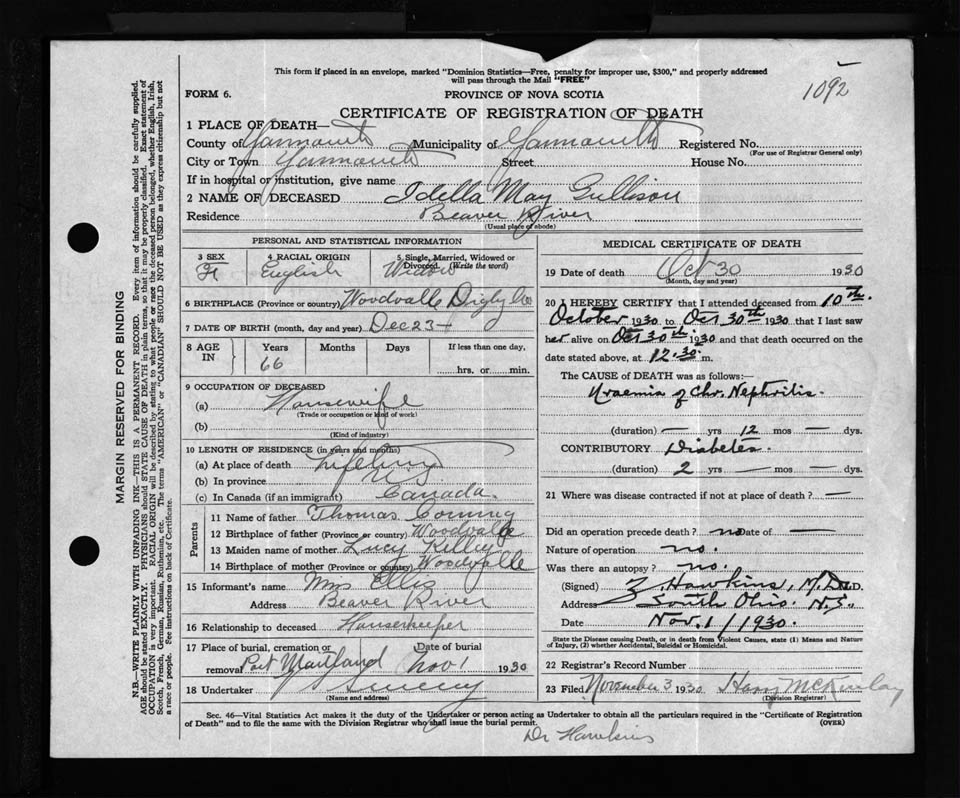 This form if placed in an envelope, marked "Dominion Statistics—Free, penalty for improper use, $300," and properly addressed
will pass through the Mail "FREE"
1092
FORM 6.
PROVINCE OF NOVA SCOTIA
CERTIFICATE OF REGISTRATION OF DEATH
1 PLACE OF DEATH—
County of Yarmouth Municipality of Yarmouth Registered No.
(For use of Registrar General only)
City or Town Yarmouth Street House No.
If in hospital or institution, give name
2 NAME OF DECEASED Idella May Gullison
Residence Beaver River
(Usual place of abode)
PERSONAL AND STATISTICAL INFORMATION
3 SEX F 4 RACIAL ORIGIN English 5 Single, Married, Widowed or Divorced. (Write the word) Widow
6 BIRTHPLACE (Province or country) Woodvalle Digby Co
7 DATE OF BIRTH (month, day and year) Dec 23
8 AGE IN Years Months Days If less than one day,
66 hrs. or min.
9 OCCUPATION OF DECEASED
(a) Housewife
(Trade or occupation or kind of work)
(b)
(Kind of industry)
10 LENGTH OF RESIDENCE (in years and months)
(a) At place of death Lifetime
(b) In province
(c) In Canada (if an immigrant) Canada.
Parents
11 Name of father Thomas Corning
12 Birthplace of father (Province or country) Woodvalle
13 Maiden name of mother Lucy Killey
14 Birthplace of mother (Province or country) Woodvalle
15 Informant's name Mrs Ellis
Address Beaver River
16 Relationship to deceased Housekeeper
17 Place of burial, cremation or removal Port Maitland Date of burial Nov 1 1930
18 Undertaker Sweeny
(Name and address)
MEDICAL CERTIFICATE OF DEATH
19 Date of death Oct 30 1930
(Month, day and year)
20 I HEREBY CERTIFY that I attended deceased from 10th.
October 1930 to Oct 30th 1930 that I last saw
her alive on Oct 30th 1930 and that death occurred on the
date stated above, at 12.30 m.
The CAUSE of DEATH was as follows:—
Uraemia of Chr. Nephritis.
(duration) — yrs 12 mos — dys.
CONTRIBUTORY Diabetes
(duration) 2 yrs — mos — dys.
21 Where was disease contracted if not at place of death? —
Did an operation precede death? no Date of —
Nature of operation no.
Was there an autopsy? no.
(Signed) Z. Hawkins, M.D. M.D.
Address South Ohio. N.S.
Date Nov. 1/1930.
State the Disease causing Death, or in death from Violent Causes, state (1) Means and Nature
of Injury, (2) whether Accidental, Suicidal or Homicidal.
22 Registrar's Record Number
23 Filed November 3 1930 Harry McKinlay
(Division Registrar)
Sec. 46—Vital Statistics Act makes it the duty of the Undertaker or person acting as Undertaker to obtain all the particulars required in the "Certificate of Registration
of Death" and to file the same with the Division Registrar who shall issue the burial permit. (OVER)
Dr Hawkins
MARGIN RESERVED FOR BINDING
N.B.—WRITE PLAINLY WITH UNFADING INK—THIS IS A PERMANENT RECORD. Every item of information should be carefully supplied.
AGE should be stated EXACTLY. PHYSICIANS should STATE CAUSE OF DEATH in plain terms, so that it may be properly classified. Exact statement of
OCCUPATION is very important. RACIAL ORIGIN will be described by stating to what people or race the deceased person belonged, whether English, Irish,
Scotch, French, German, Russian, Ruthenian, etc. The terms "AMERICAN" or "CANADIAN" SHOULD NOT BE USED as they express citizenship but not
a race or people. See instructions on back of Certificate.